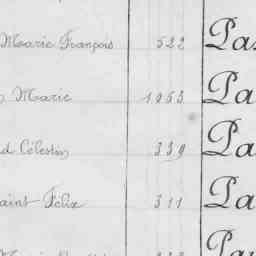 Marie François 522 Pas
Marie 1053 Pa
d Célestin 339 Pa
aint Félix 311 Pa